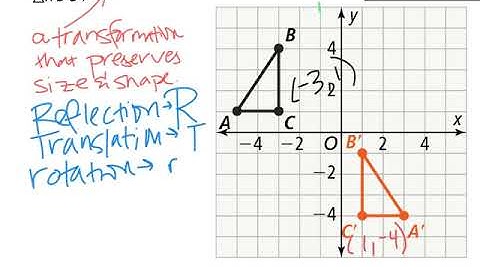 a transformation
that preserves
size & shape.
Reflection → R
Translatim → T
rotation → r
y
B
4
(-3, 1)
2
A
C
x
-4
-2
O
B'
2
4
-2
-4
C'
A'
(1, -4)